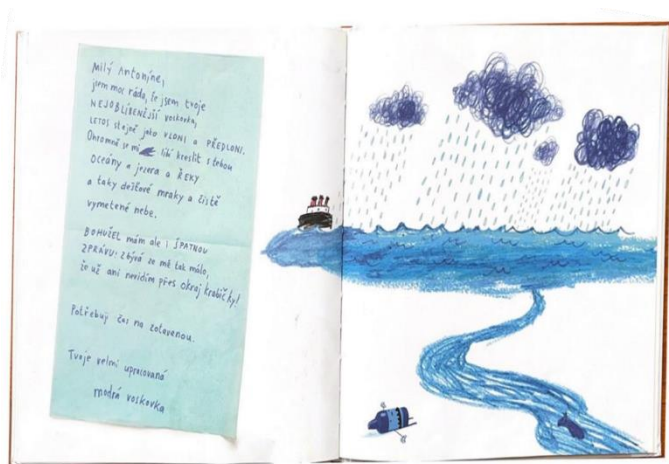 Milý Antoníne,
jsem moc ráda, že jsem tvoje
NEJOBLÍBENĚJŠÍ voskovka,
LETOS stejně jako VLONI a PŘEDLONI.
Ohromně se mi líbí kreslit s tebou
OCEÁNY a jezera a ŘEKY
a taky dešťové mraky a čistě
vymetené nebe.
BOHUŽEL mám ale i ŠPATNOU
ZPRÁVU! Zbývá ze mě tak málo,
že už ani nevidím přes okraj krabičky!
Potřebuji čas na zotavenou.
Tvoje velmi upracovaná
modrá voskovka